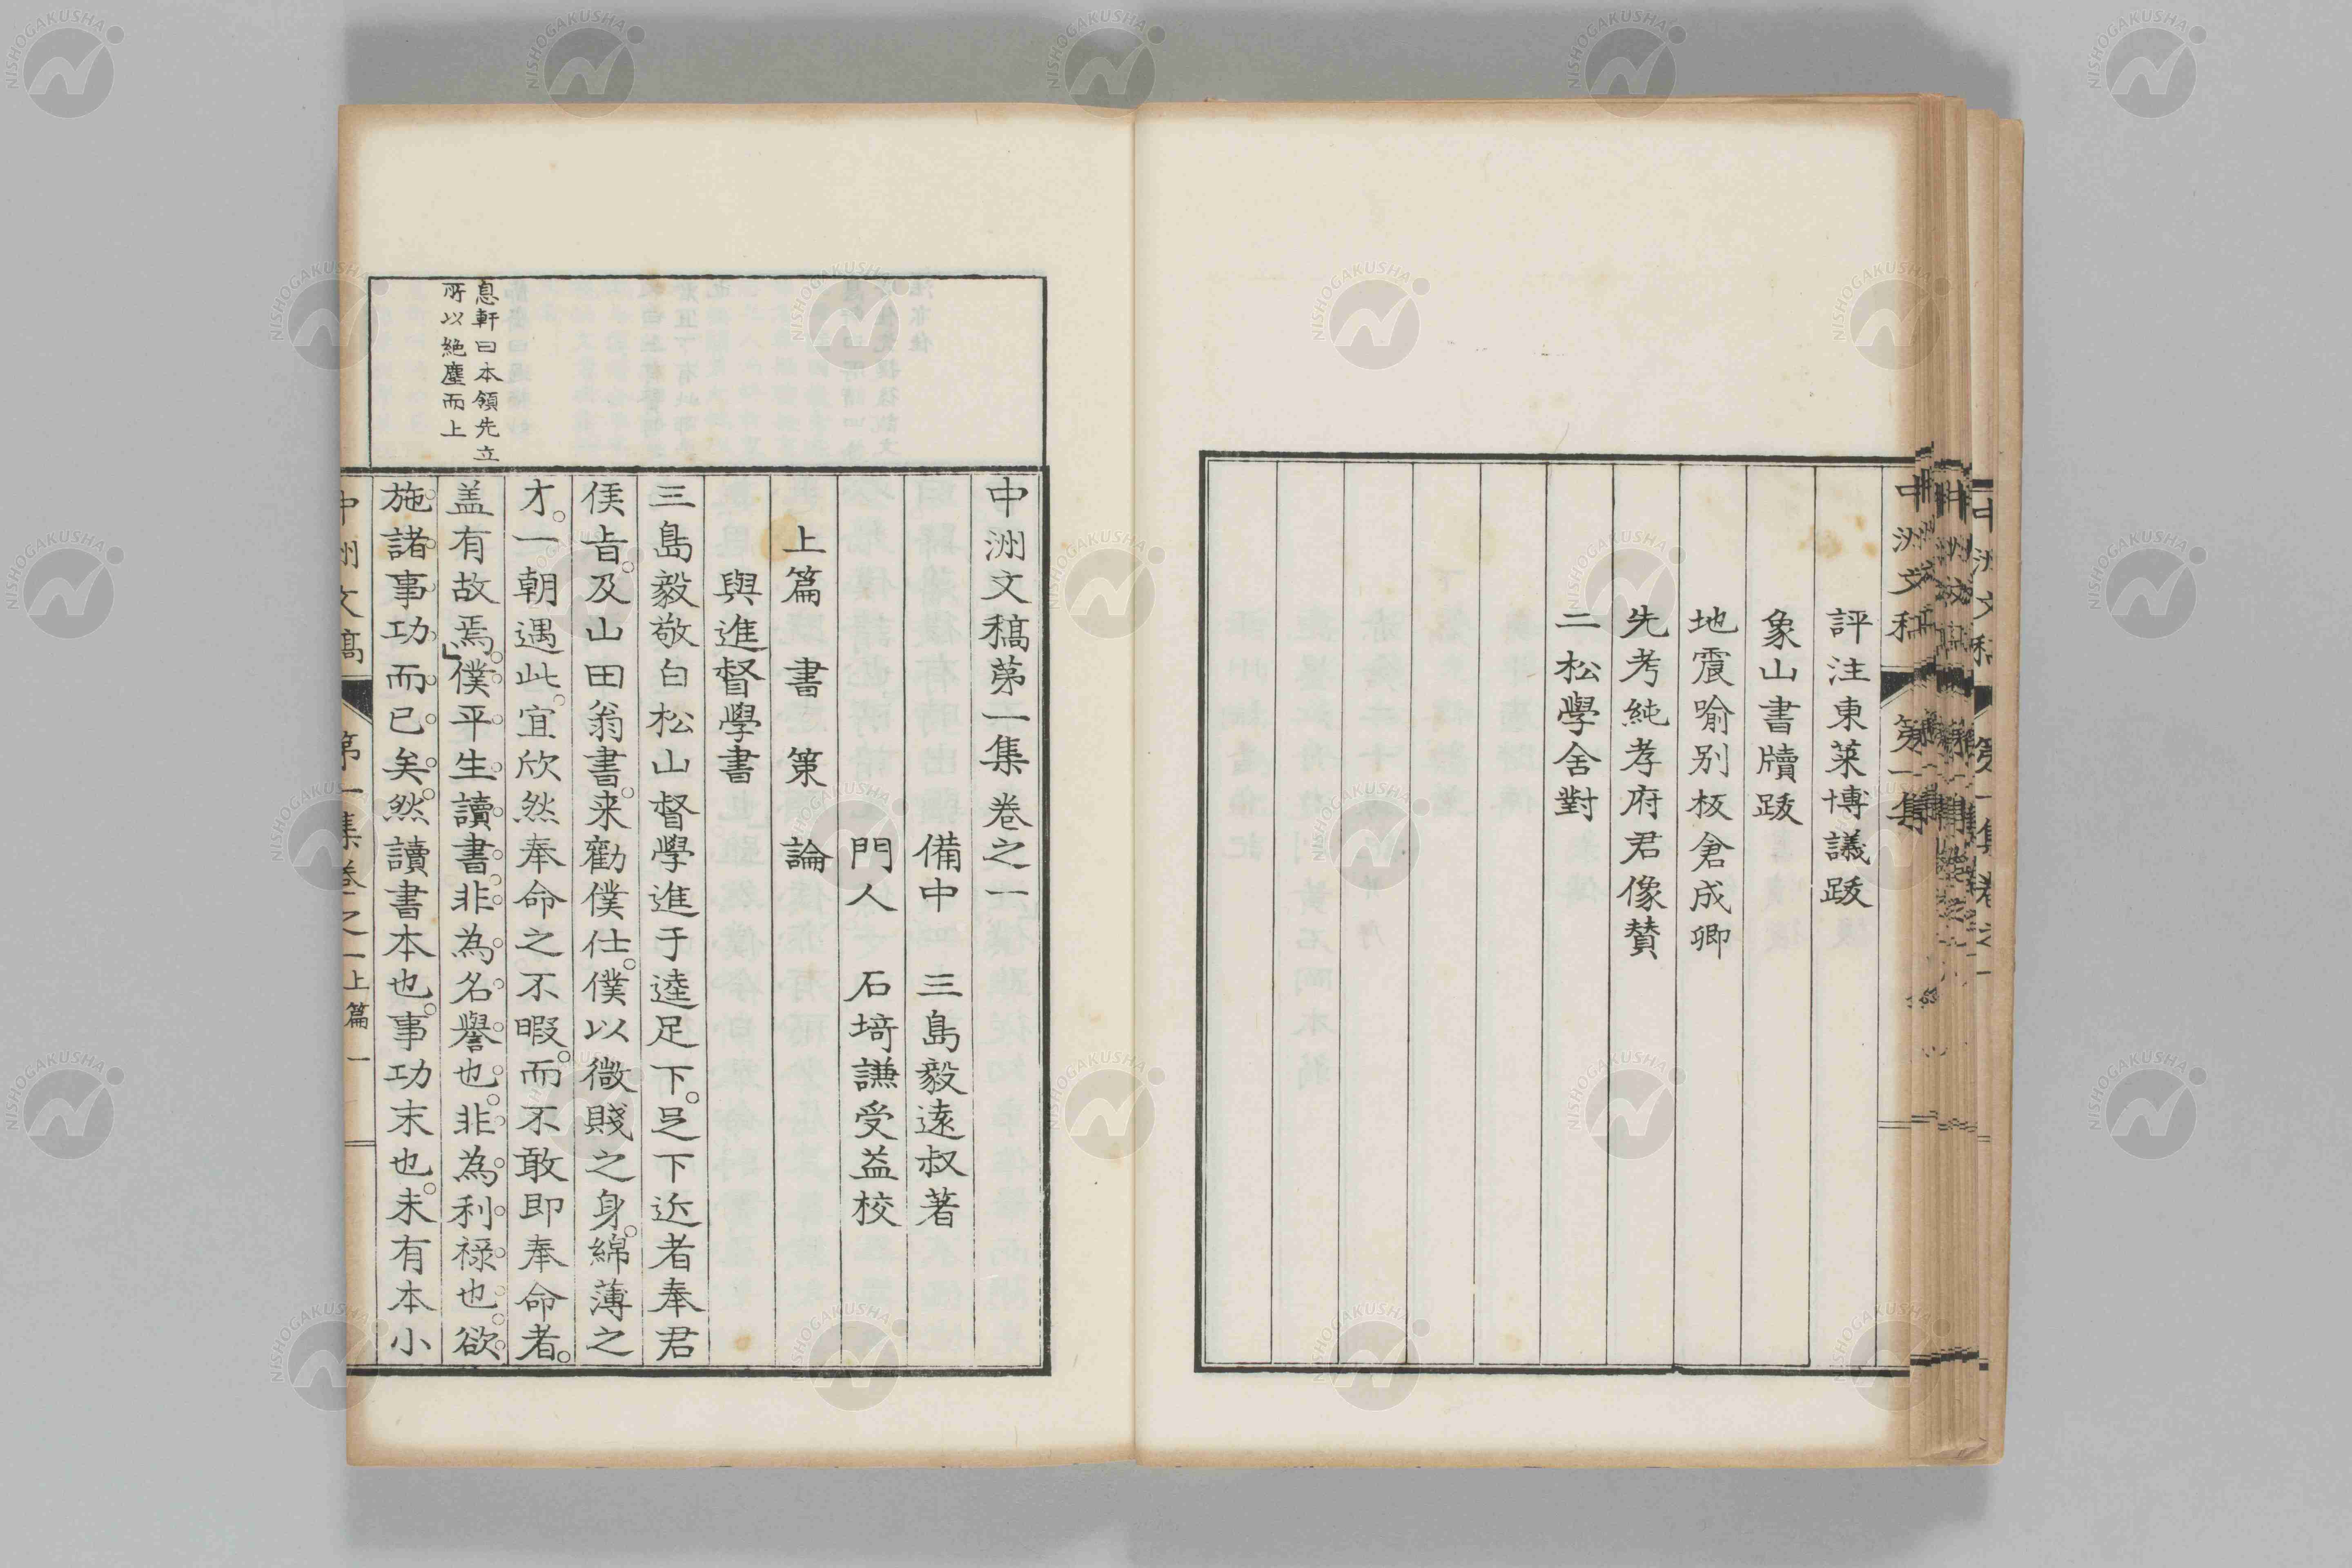 評注東萊博議跋
象山書牘跋
地震喻别板倉成卿
先考純孝府君像賛
二松學舍對
中洲文稿第一集卷之一
備中 三島毅遠叔著
門人 石埼謙受益校
上篇 書 策 論
與進督學書
三島毅敬白松山督學進于逵足下。足下近者奉君
侯旨。及山田翁書。来勸僕仕。僕以微賤之身。綿薄之
才。一朝遇此。宜欣然奉命之不暇。而不敢即奉命者。
盖有故焉。僕平生讀書。非為名譽也。非為利禄也。欲
施諸事功而已矣。然讀書本也。事功末也。未有本小
息軒曰本領先立
所以絶塵而上
中洲文稿 第一集卷之一上篇 一
NISHOGAKUSHA